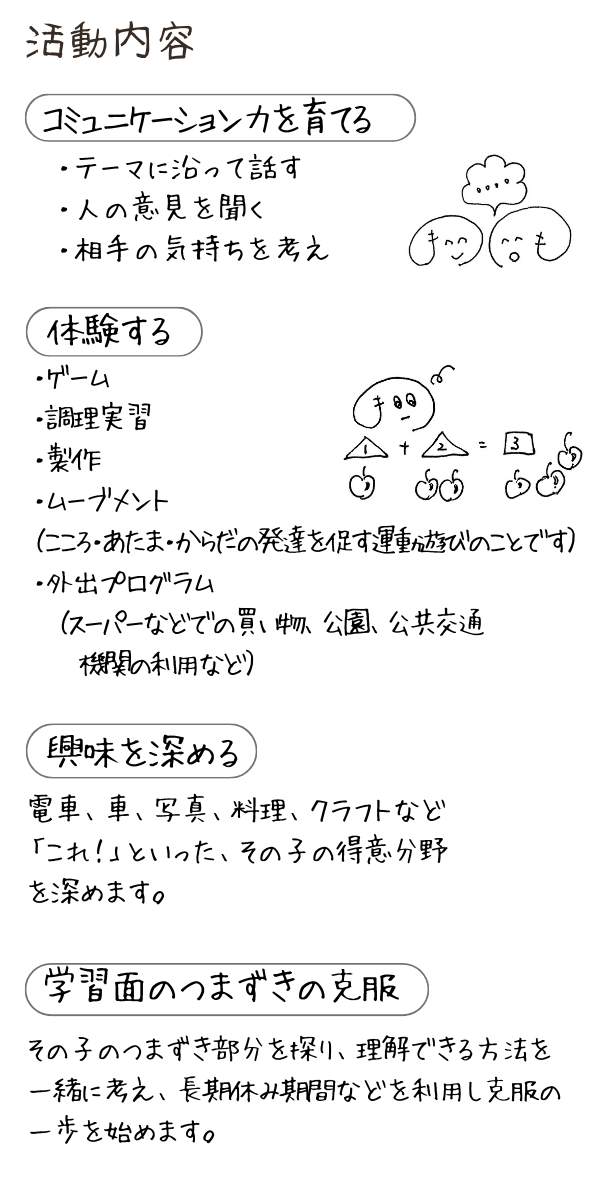 活動内容
コミュニケーション力を育てる
・テーマに沿って話す
・人の意見を聞く
・相手の気持ちを考え
体験する
・ゲーム
・調理実習
・製作
・ムーブメント
(こころ・あたま・からだの発達を促す運動遊びのことです)
・外出プログラム
(スーパーなどでの買い物、公園、公共交通
機関の利用など)
1 + 2 = 3
興味を深める
電車、車、写真、料理、クラフトなど
「これ!」といった、その子の得意分野
を深めます。
学習面のつまずきの克服
その子のつまずき部分を探り、理解できる方法を
一緒に考え、長期休み期間などを利用し克服の
一歩を始めます。